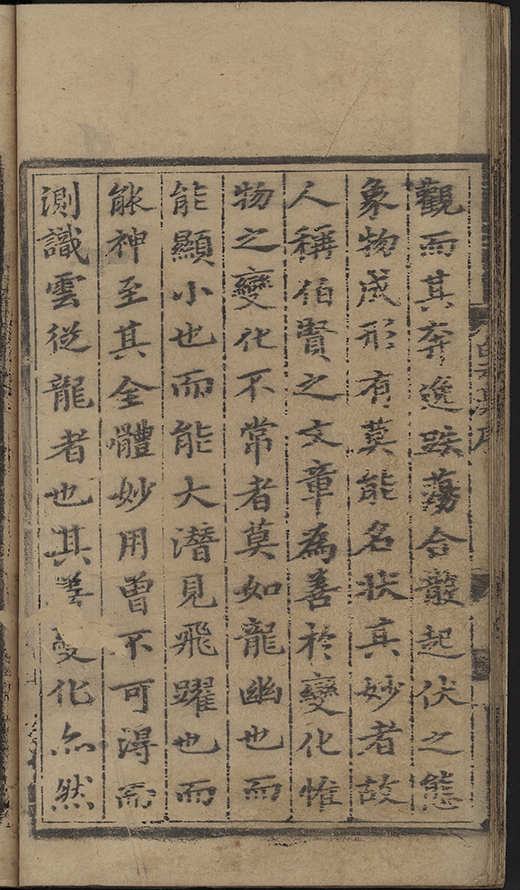 觀而其奔逸跌蕩合散起伏之態
象物成形有莫能名狀真妙者故
人稱伯賢之文章為善於變化惟
物之變化不常者莫如龍幽也而
能顯小也而能大潛見飛躍也而
能神至其全體妙用曾不可得而
測識雲從龍者也其善變化亦然